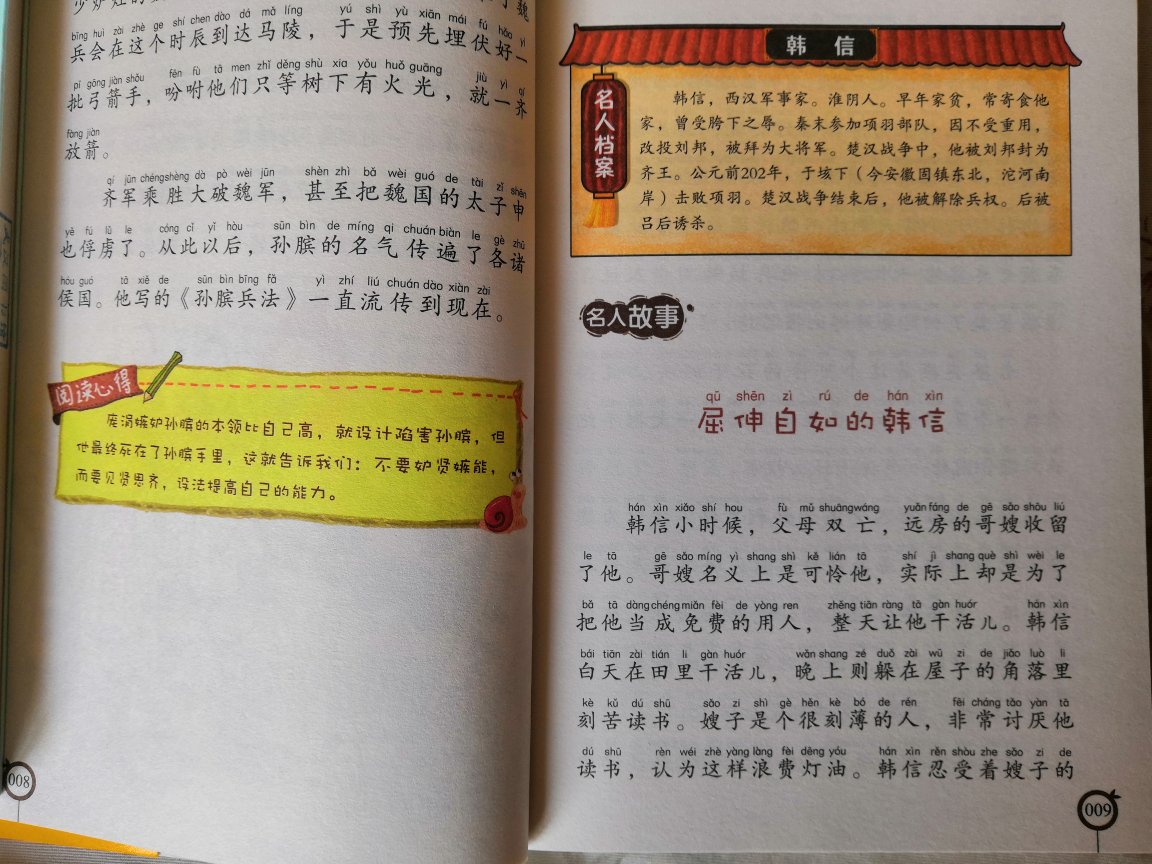 bīng huì zài zhè ge shí chen dào dá mǎ líng yú shì yù xiān mái fú hǎo yì
兵会在这个时辰到达马陵，于是预先埋伏好一
pī gōng jiàn shǒu fēn fù tā men zhǐ děng shù xia yǒu huǒ guāng jiù yì qí
批弓箭手，吩咐他们只等树下有火光，就一齐
fàng jiàn
放箭。
qí jūn chéng shèng dà pò wèi jūn shèn zhì bǎ wèi guó de tài zǐ shēn
齐军乘胜大破魏军，甚至把魏国的太子申
yě fú lǔ le cóng cǐ yǐ hòu sūn bìn de míng qi chuán biàn le gè zhū
也俘虏了。从此以后，孙膑的名气传遍了各诸
hóu guó tā xiě de sūn bìn bīng fǎ yì zhí liú chuán dào xiàn zài
侯国。他写的《孙膑兵法》一直流传到现在。
阅读心得
庞涓嫉妒孙膑的本领比自己高，就设计陷害孙膑，但
他最终死在了孙膑手里，这就告诉我们：不要妒贤嫉能，
而要见贤思齐，设法提高自己的能力。
008
韩信
名人档案
韩信，西汉军事家。淮阴人。早年家贫，常寄食他
家，曾受胯下之辱。秦末参加项羽部队，因不受重用，
改投刘邦，被拜为大将军。楚汉战争中，他被刘邦封为
齐王。公元前202年，于垓下（今安徽固镇东北，沱河南
岸）击败项羽。楚汉战争结束后，他被解除兵权。后被
吕后诱杀。
名人故事
qū shēn zì rú de hán xìn
屈伸自如的韩信
hán xìn xiǎo shí hou fù mǔ shuāng wáng yuǎn fáng de gē sǎo shōu liú
韩信小时候，父母双亡，远房的哥嫂收留
le tā gē sǎo míng yì shang shì kě lián tā shí jì shang què shì wèi le
了他。哥嫂名义上是可怜他，实际上却是为了
bǎ tā dàng chéng miǎn fèi de yòng ren zhěng tiān ràng tā gàn huór hán xìn
把他当成免费的用人，整天让他干活儿。韩信
bái tiān zài tián li gàn huór wǎn shang zé duǒ zài wū zi de jiǎo luò li
白天在田里干活儿，晚上则躲在屋子的角落里
kè kǔ dú shū sǎo zi shì gè hěn kè bó de rén fēi cháng tǎo yàn tā
刻苦读书。嫂子是个很刻薄的人，非常讨厌他
dú shū rèn wéi zhè yàng làng fèi dēng yóu hán xìn rěn shòu zhe sǎo zi de
读书，认为这样浪费灯油。韩信忍受着嫂子的
009